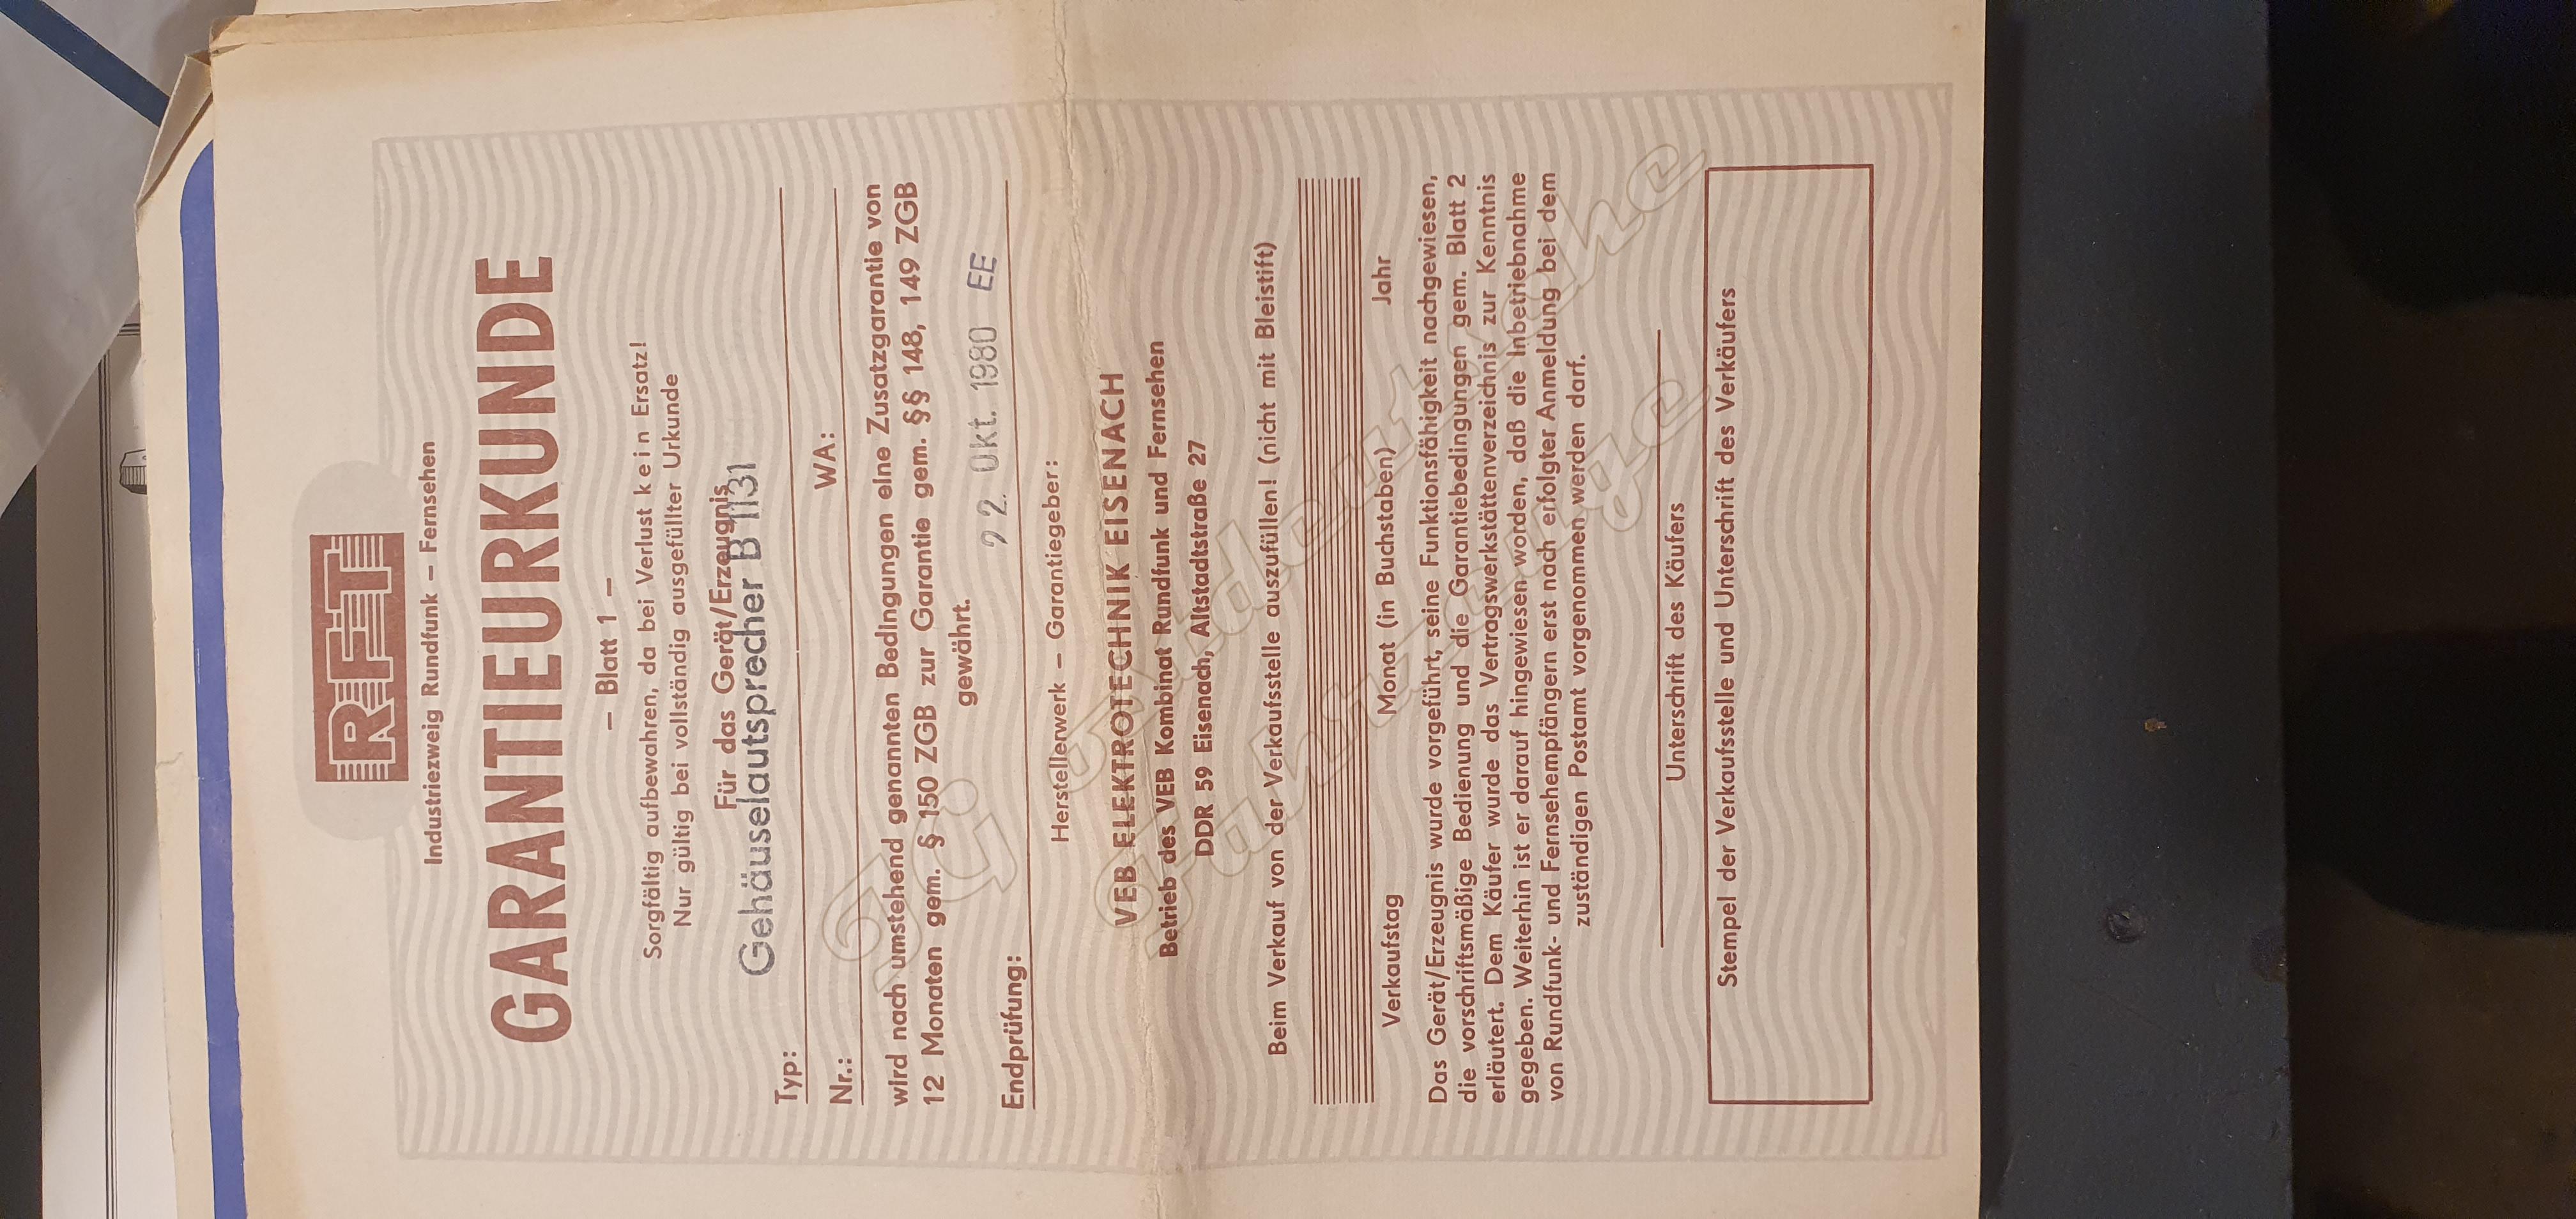 RFT
Industriezweig Rundfunk – Fernsehen
GARANTIEURKUNDE
– Blatt 1 –
Sorgfältig aufbewahren, da bei Verlust kein Ersatz!
Nur gültig bei vollständig ausgefüllter Urkunde
Für das Gerät/Erzeugnis
Gehäuselautsprecher B 1131
Typ:
Nr.: WA:
wird nach umstehend genannten Bedingungen eine Zusatzgarantie von
12 Monaten gem. § 150 ZGB zur Garantie gem. §§ 148, 149 ZGB
gewährt.
22. Okt. 1980 EE
Endprüfung:
Herstellerwerk – Garantiegeber:
VEB ELEKTROTECHNIK EISENACH
Betrieb des VEB Kombinat Rundfunk und Fernsehen
DDR 59 Eisenach, Altstadtstraße 27
Beim Verkauf von der Verkaufsstelle auszufüllen! (nicht mit Bleistift)
Verkaufstag Monat (in Buchstaben) Jahr
Das Gerät/Erzeugnis wurde vorgeführt, seine Funktionsfähigkeit nachgewiesen,
die vorschriftsmäßige Bedienung und die Garantiebedingungen gem. Blatt 2
erläutert. Dem Käufer wurde das Vertragswerkstättenverzeichnis zur Kenntnis
gegeben. Weiterhin ist er darauf hingewiesen worden, daß die Inbetriebnahme
von Rundfunk- und Fernsehempfängern erst nach erfolgter Anmeldung bei dem
zuständigen Postamt vorgenommen werden darf.
Unterschrift des Käufers
Stempel der Verkaufsstelle und Unterschrift des Verkäufers
IG Ostdeutsche
Fahrzeuge